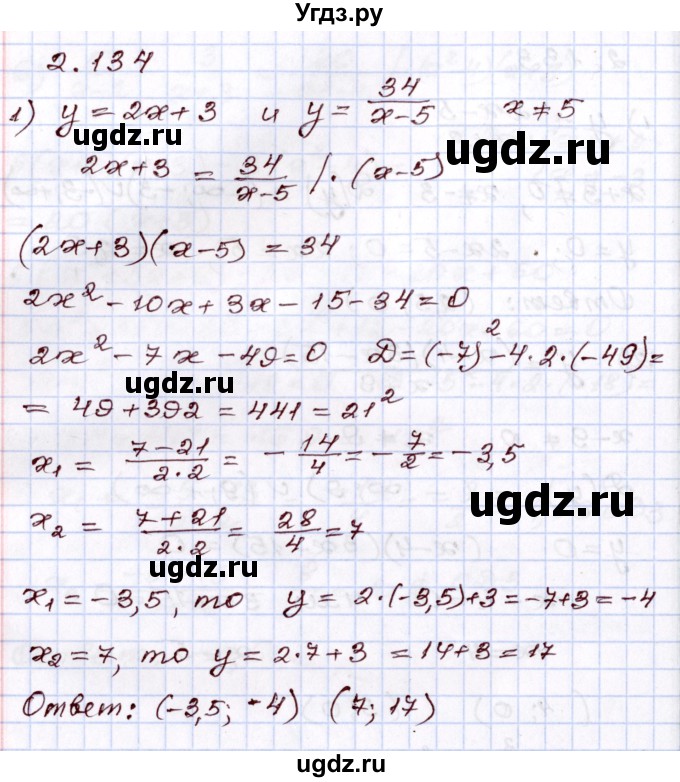 Угдз.ру
2.134
1) y = 2x + 3 и y = 34/(x-5) x ≠ 5
ugdz.ru
ugdz.ru
2x + 3 = 34/(x-5) /· (x-5)
(2x+3)(x-5) = 34
2x² - 10x + 3x - 15 - 34 = 0
2x² - 7x - 49 = 0 D = (-7)² - 4·2·(-49) =
ugdz.ru
= 49 + 392 = 441 = 21²
x₁ = (7-21)/(2·2) = - 14/4 = - 7/2 = -3,5
ugdz.ru
x₂ = (7+21)/(2·2) = 28/4 = 7
ugdz.ru
x₁ = -3,5, то y = 2·(-3,5)+3 = -7+3 = -4
x₂ = 7, то y = 2·7+3 = 14+3 = 17
Ответ: (-3,5; -4) (7; 17)
ugdz.ru